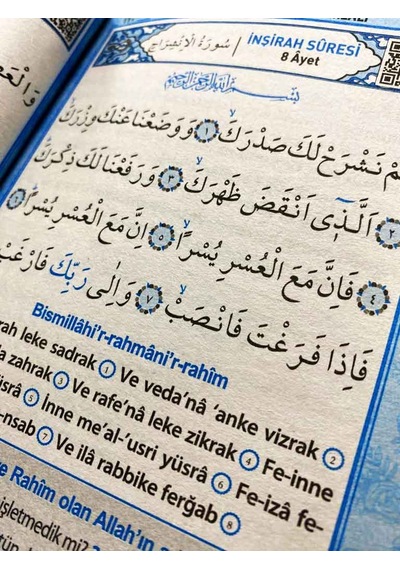 سُورَةُ الْاِنْشِرَاحِ
İNŞİRAH SÛRESİ
8 Âyet
بِسْمِ اللّٰهِ الرَّحْمٰنِ الرَّحٖيمِ
نَشْرَحْ لَكَ صَدْرَكَۙ ﴿١﴾ وَوَضَعْنَا عَنْكَ وِزْرَكَۙ
﴿٢﴾ اَلَّذٖٓى اَنْقَضَ ظَهْرَكَۙ ﴿٣﴾ وَرَفَعْنَا لَكَ ذِكْرَكَۜ
﴿٤﴾ فَاِنَّ مَعَ الْعُسْرِ يُسْراًۙ ﴿٥﴾ اِنَّ مَعَ الْعُسْرِ يُسْراًۜ
فَاِذَا فَرَغْتَ فَانْصَبْۙ ﴿٧﴾ وَاِلٰى رَبِّكَ
Bismillâhi'r-rahmâni'r-rahîm
leke sadrak 1 Ve veda'nâ 'anke vizrak 2
zahrak 3 Ve rafe'nâ leke zikrak 4 Fe-inne
5 İnne me'al-'usri yüsrâ 6 Fe-izâ fe-
7 Ve ilâ rabbike ferğab 8
Rahîm olan Allah'ın